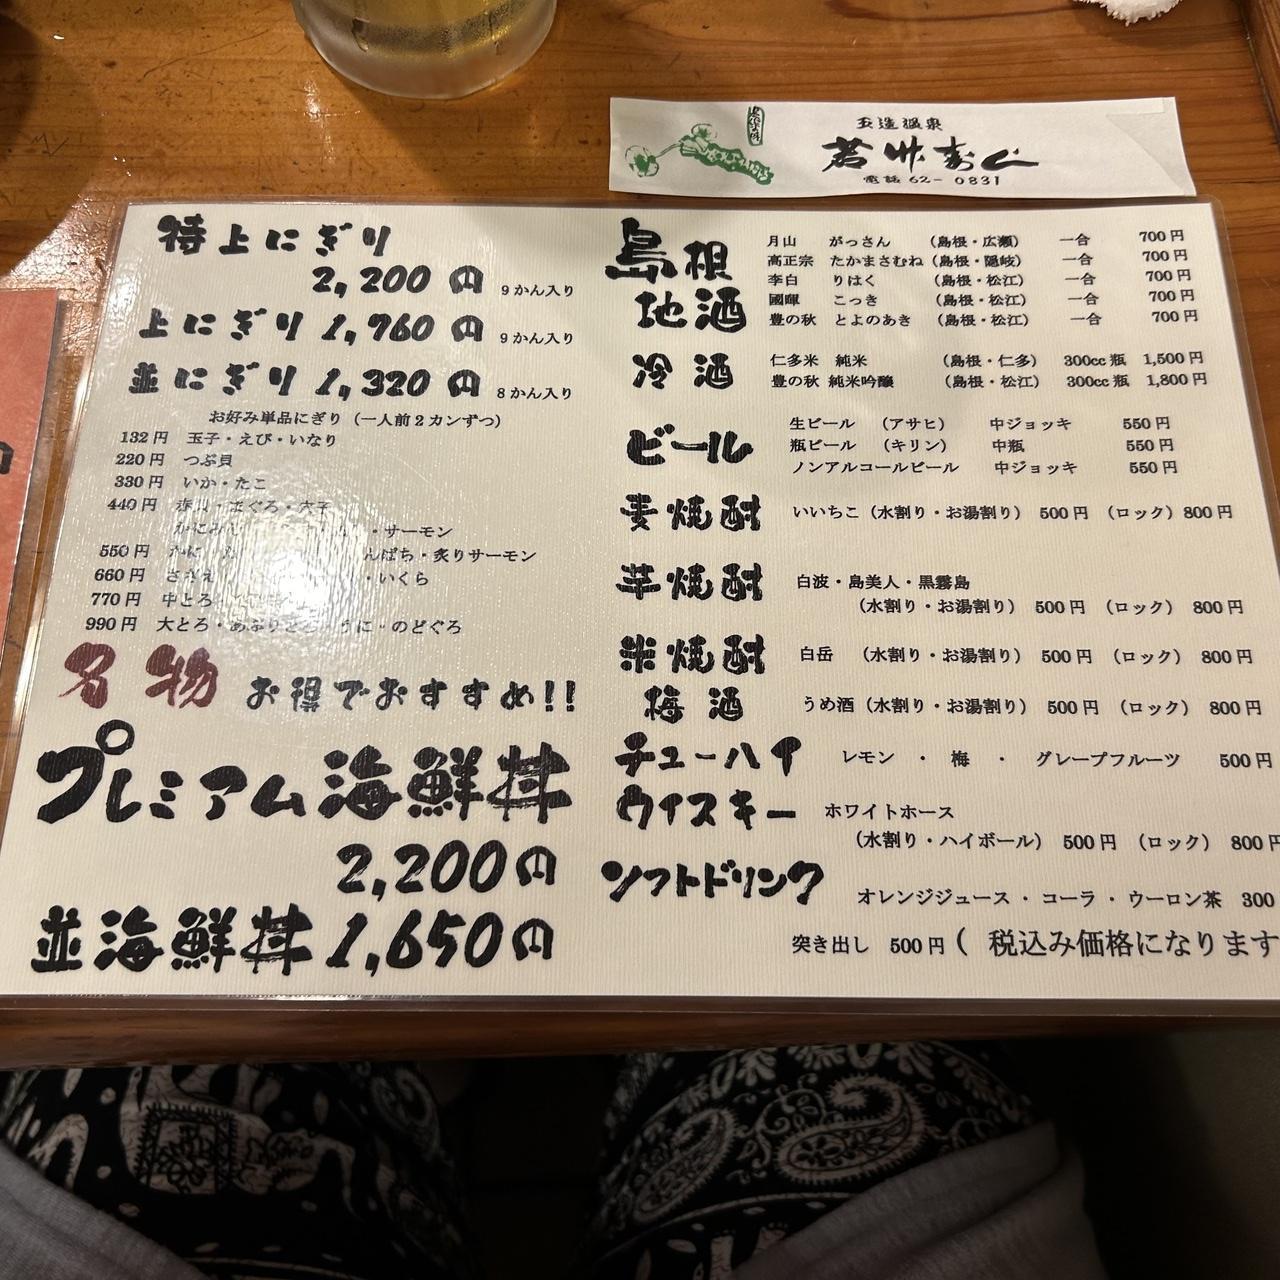 玉造温泉
若竹寿し
電話 62-0831
特上にぎり
2,200円 9かん入り
上にぎり 1,760円 9かん入り
並にぎり 1,320円 8かん入り
お好み単品にぎり (一人前2カンずつ)
132円 玉子・えび・いなり
220円 つぶ貝
330円 いか・たこ
440円 赤貝・まぐろ・穴子
かにみそ ・サーモン
550円 んぱち・炙りサーモン
660円 さざえ ・いくら
770円 中とろ
990円 大とろ・あぶりとろ・うに・のどぐろ
名物 お得でおすすめ!!
プレミアム海鮮丼
2,200円
並海鮮丼 1,650円
島根
地酒
月山 がっさん (島根・広瀬) 一合 700円
高正宗 たかまさむね (島根・隠岐) 一合 700円
李白 りはく (島根・松江) 一合 700円
國暉 こっき (島根・松江) 一合 700円
豊の秋 とよのあき (島根・松江) 一合 700円
冷酒
仁多米 純米 (島根・仁多) 300cc瓶 1,500円
豊の秋 純米吟醸 (島根・松江) 300cc瓶 1,800円
ビール
生ビール (アサヒ) 中ジョッキ 550円
瓶ビール (キリン) 中瓶 550円
ノンアルコールビール 中ジョッキ 550円
麦焼酎 いいちこ (水割り・お湯割り) 500円 (ロック) 800円
芋焼酎 白波・島美人・黒霧島
(水割り・お湯割り) 500円 (ロック) 800円
米焼酎 白岳 (水割り・お湯割り) 500円 (ロック) 800円
梅酒 うめ酒 (水割り・お湯割り) 500円 (ロック) 800円
チューハイ レモン ・ 梅 ・ グレープフルーツ 500円
ウイスキー ホワイトホース
(水割り・ハイボール) 500円 (ロック) 800円
ソフトドリンク
オレンジジュース・コーラ・ウーロン茶 300
突き出し 500円 ( 税込み価格になります